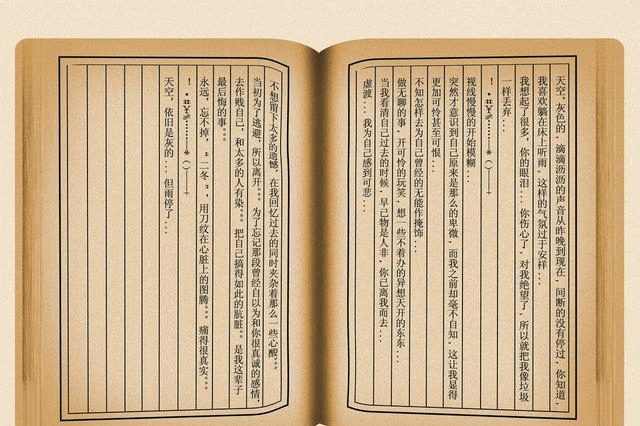 天空，灰色的，滴滴沥沥的声音从昨晚到现在，间断的没有停过，你知道，
我喜欢躺在床上听雨，这样的气氛过于安祥...
我想起了很多，你的眼泪...你伤心了，对我绝望了，所以就把我像垃圾
一样丢弃...
视线慢慢的开始模糊...
突然才意识到自己原来是那么的卑微，而我之前却毫不自知，这让我显得
更加可怜甚至可恨...
不知怎样去为自己曾经的无能作掩饰...
做无聊的事，开可怜的玩笑，想一些不着办的异想天开的东东...
当我看清自己过去的时候，早已物是人非，你已离我而去...
虚渡...我为自己感到可悲...
不想留下太多的遗憾，在我回忆过去的同时夹杂着那么一些心酸。。。
当初为了逃避，所以离开。。为了忘记那段曾经自以为和你很真诚的感情，
去作贱自己，和太多的人有染。。把自己搞得如此的肮脏。。是我这辈子
最后悔的事。。。
永远，忘不掉，“二冬”，用刀纹在心脏上的图腾。。。痛得很真实。。。
天空，依旧是灰的...但雨停了...